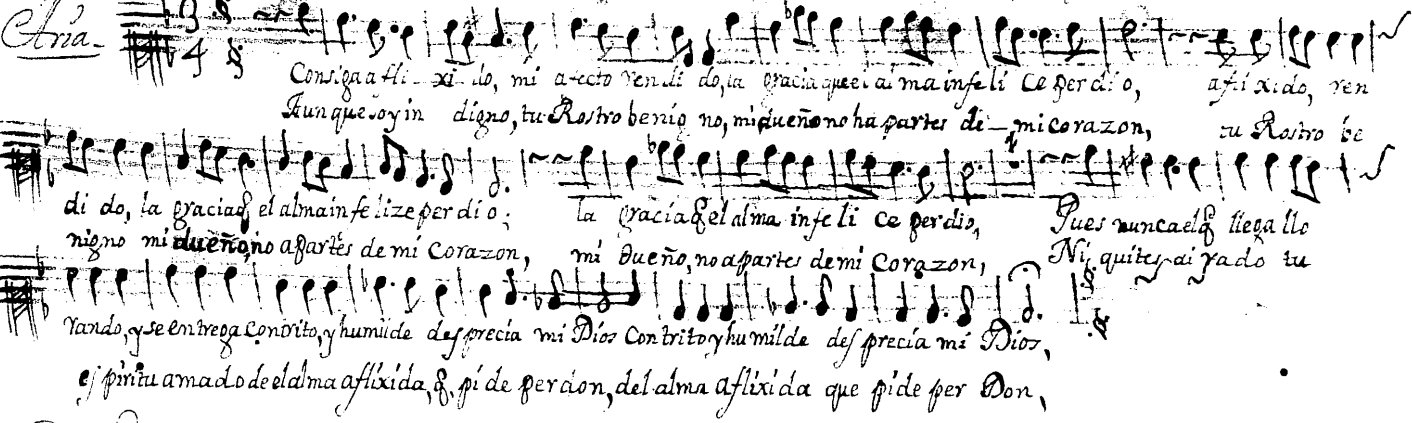 Aria
3
4
Consiga afli-xi-do, mi afecto rendi do, la gracia que el alma infeli ce perdio, aflixido, ren
Aunque soy in digno, tu Rostro benig no, mi dueño no ha partes de - mi corazon, tu Rostro be
di do, la gracia q el alma infelize perdio; la gracia q el alma infeli ce perdio, Pues nunca el q llega llo
nigno mi dueño, no apartes de mi Corazon, mi dueño, no apartes de mi Corazon, Ni quites ai rado tu
rando, y se entrega Contrito, y humilde desprecia mi Dios Contrito y humilde desprecia mi Dios,
espiritu amado de el alma aflixida, q. pide perdon, del alma aflixida que pide per Don,